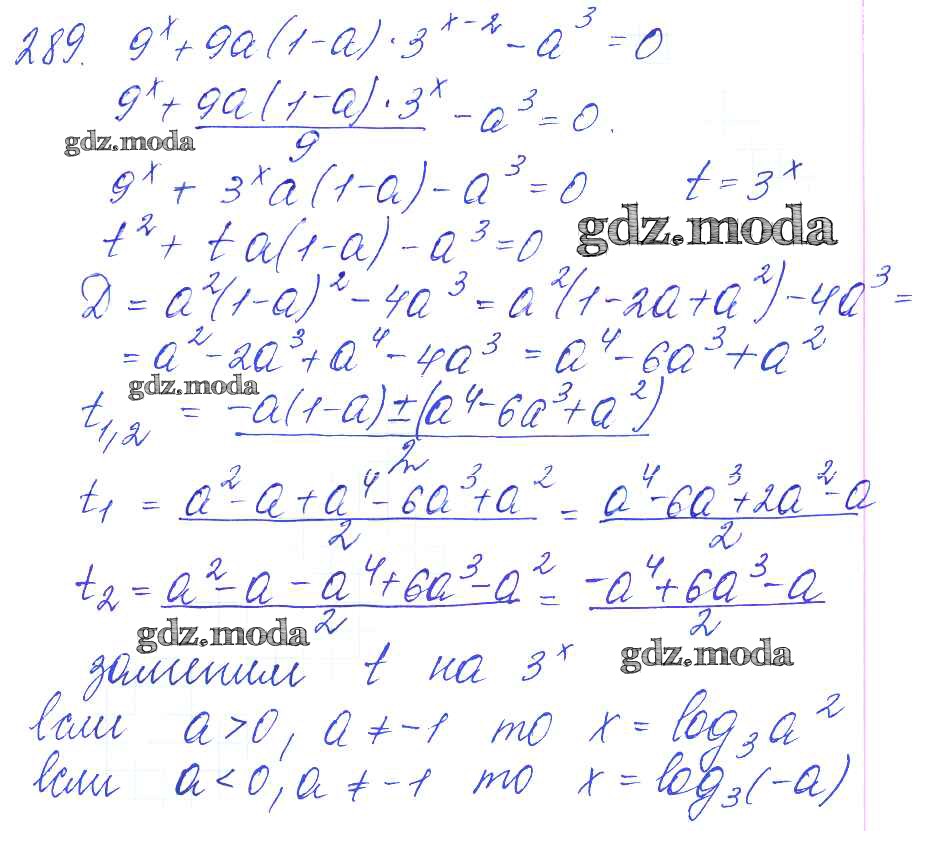 289. 9^x + 9a(1-a)·3^{x-2} - a^3 = 0
9^x + \frac{9a(1-a)·3^x}{9} - a^3 = 0.
gdz.moda
9^x + 3^x a(1-a) - a^3 = 0 t = 3^x
gdz.moda
t^2 + ta(1-a) - a^3 = 0
D = a^2(1-a)^2 - 4a^3 = a^2(1-2a+a^2) - 4a^3 =
= a^2 - 2a^3 + a^4 - 4a^3 = a^4 - 6a^3 + a^2
gdz.moda
t_{1,2} = \frac{-a(1-a) ± (a^4 - 6a^3 + a^2)}{2}
t_1 = \frac{a^2 - a + a^4 - 6a^3 + a^2}{2} = \frac{a^4 - 6a^3 + 2a^2 - a}{2}
t_2 = \frac{a^2 - a - a^4 + 6a^3 - a^2}{2} = \frac{-a^4 + 6a^3 - a}{2}
gdz.moda
gdz.moda
заменим t на 3^x
если a > 0, a ≠ -1 то x = log_3 a^2
если a < 0, a ≠ -1 то x = log_3 (-a)